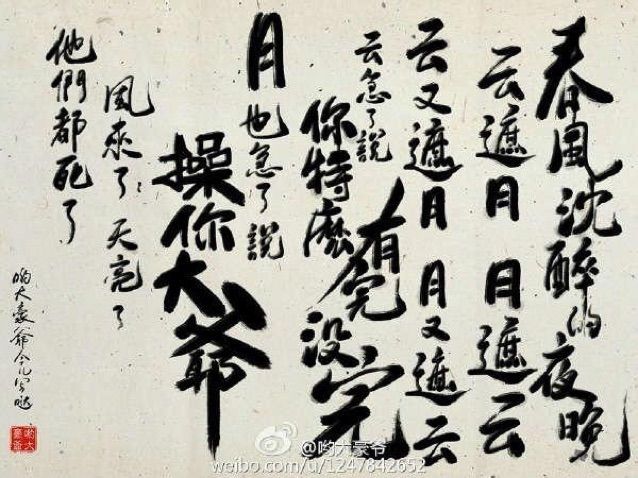 春風沈醉的夜晚
云遮月 月遮云
云又遮月 月又遮云
云急了說
你特麼有完没完
月也急了說
操你大爺
風來了 天亮了
他們都死了
哟大豪爺今儿写哒
哟大豪爺
@哟大豪爷
weibo.com/u/1247842652